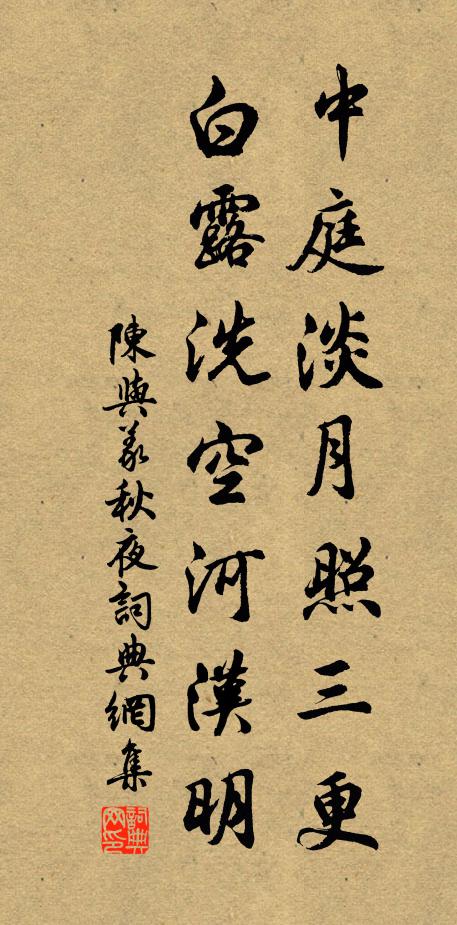 中庭淡月照三更
白露洗空河漢明
陳與義秋夜詞典網集
詞典网印